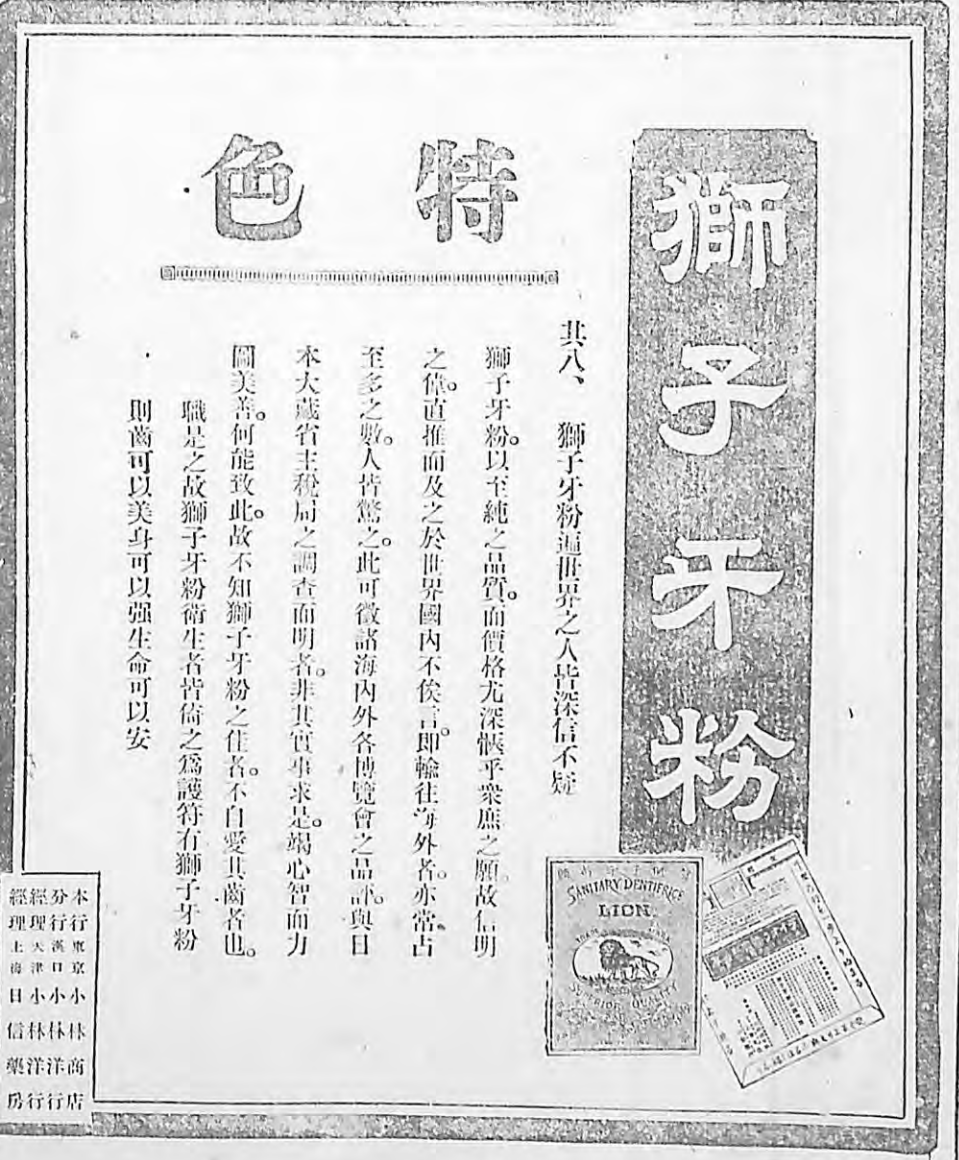 獅子牙粉
特色
其八、獅子牙粉遍世界之人皆深信不疑
獅子牙粉。以至純之品質。而價格尤深愜乎衆庶之願。故信明
之偉。直推而及之於世界國內不俟言。即輸往海外者。亦常占
至多之數。人皆驚之。此可徵諸海內外各博覽會之品評。與日
本大藏省主稅局之調查而明者。非其實事求是。竭心智而力
圖美善。何能致此。故不知獅子牙粉之佳者。不自愛其齒者也。
職是之故獅子牙粉衛生者皆倚之爲護符有獅子牙粉
則齒可以美身可以强生命可以安
SANITARY DENTIFRICE
LION
SUPERIOR QUALITY
本行東京小林商店
分行漢口小林洋行
經理天津小林洋行
經理上海日信藥房